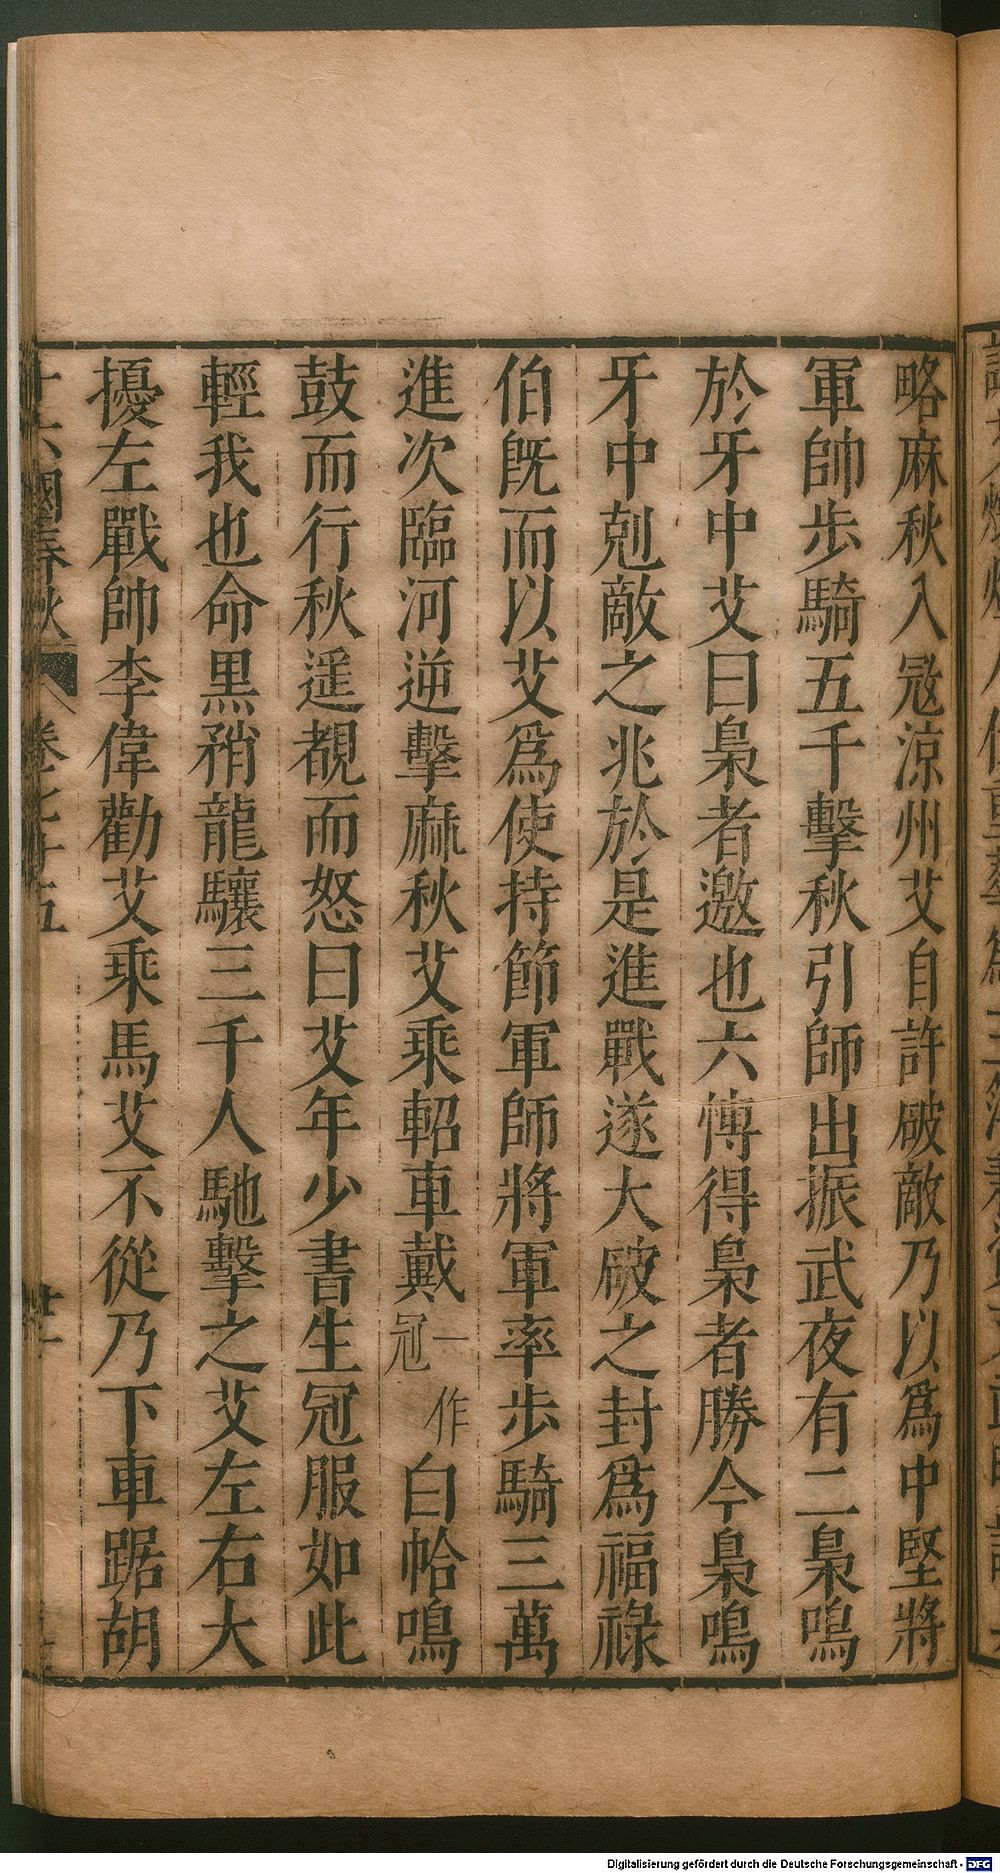 略麻秋入寇涼州艾自許破敵乃以爲中堅將
軍帥步騎五千擊秋引師出振武夜有二梟鳴
於牙中艾曰梟者邀也六愽得梟者勝今梟鳴
牙中剋敵之兆於是進戰遂大破之封爲福祿
伯旣而以艾爲使持節軍師將軍率步騎三萬
進次臨河逆擊麻秋艾乘軺車戴一作冠白帢鳴
鼓而行秋遥覩而怒曰艾年少書生冠服如此
輕我也命黒矟龍驤三千人馳擊之艾左右大
擾左戰帥李偉勸艾乘馬艾不從乃下車踞胡
十六國春秋 卷七十五
Digitalisierung gefördert durch die Deutsche Forschungsgemeinschaft - DFG